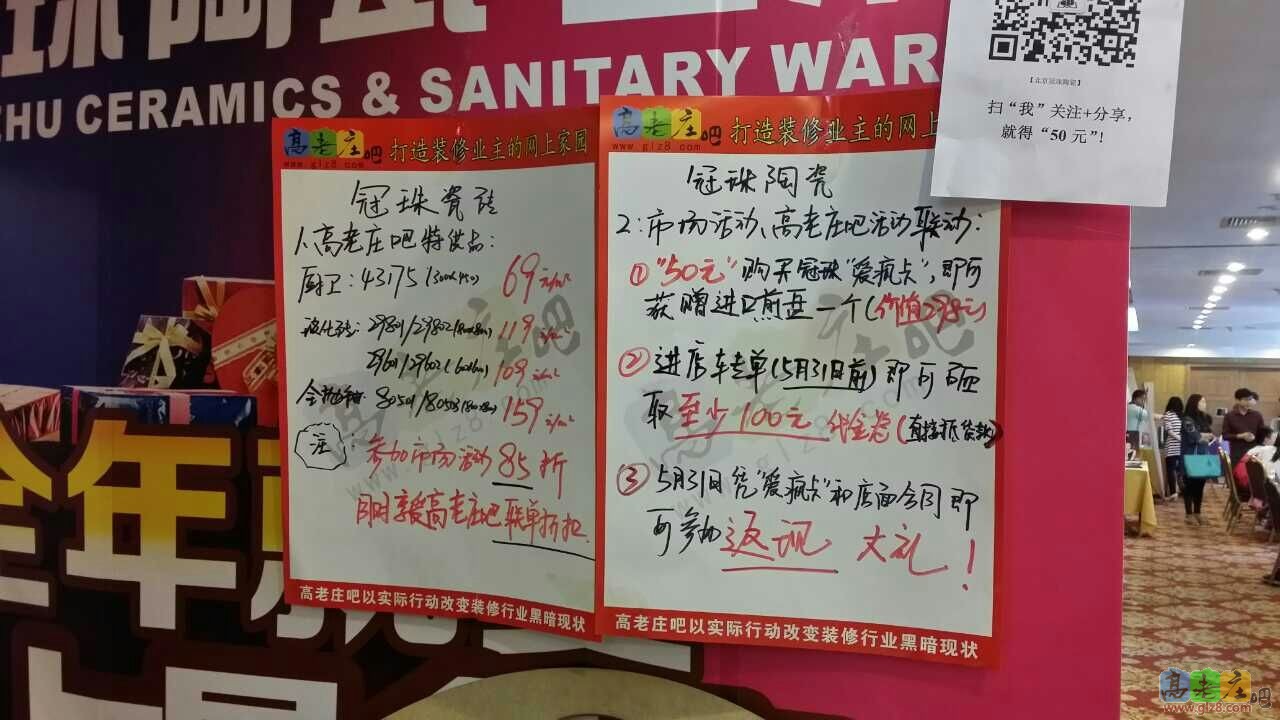 CERAMICS & SANITARY WAR
【北京冠珠陶瓷】
扫“我”关注+分享，
就得“50元”！
高老庄吧 打造装修业主的网上家园
www.glz8.com
冠珠瓷砖
1、高老庄吧特供品：
厨卫：43175(300x450) 69元/m²
29801/29802(800x800) 119元/m²
29601/29602(600x600) 109元/m²
80501/80503(800x800) 159元/m²
注：参加市场活动85折
同时享受高老庄吧联单折扣
高老庄吧以实际行动改变装修行业黑暗现状
高老庄吧 打造装修业主的网上
www.glz8.com
冠珠陶瓷
2：市场活动、高老庄吧活动联动：
①“50元”购买冠珠“爱疯卡”，即可
获赠进口煎盘一个(价值298元)
②进店转单(5月31日前)即可砸
取至少100元代金卷(直接抵货款)
③5月31日凭“爱疯卡”和店面合同即
可参加返现大礼！
高老庄吧以实际行动改变装修行业黑暗现状
全年
高老庄吧
www.glz8.com